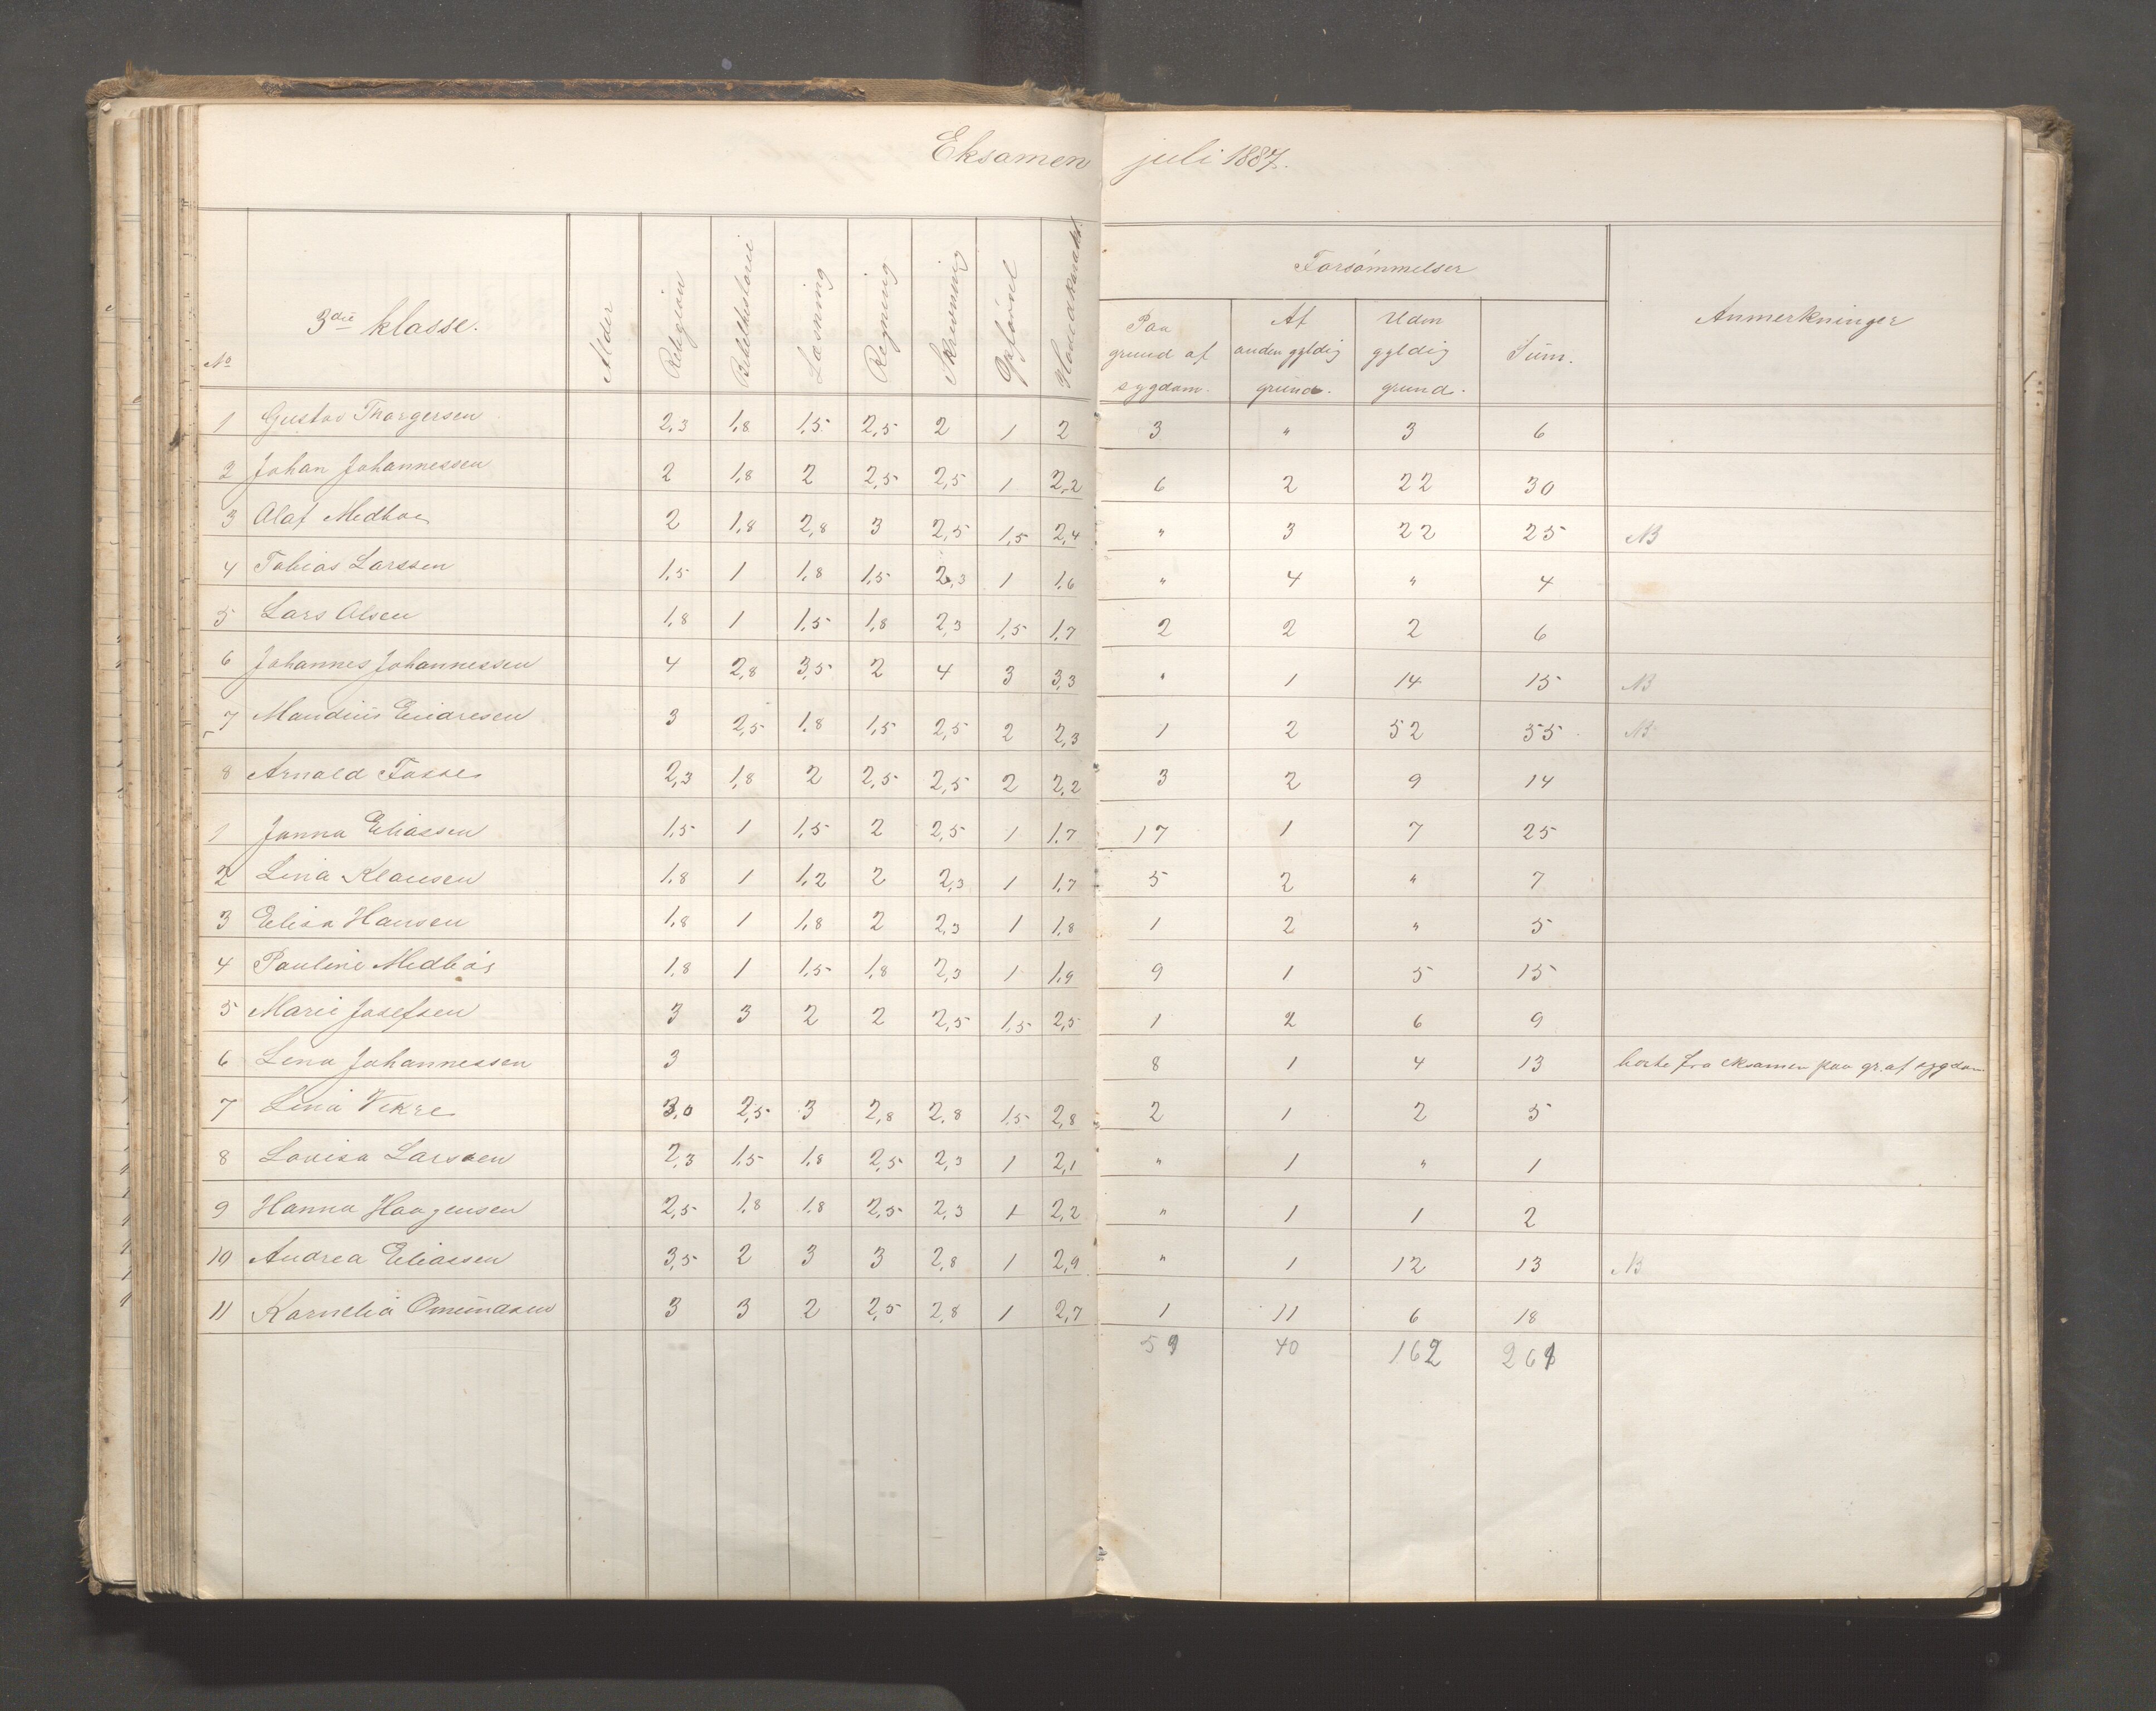 Eksamen juli 1887.
No 3die klasse. Alder Religion Bibelhistorie Læsning Regning Skrivning Opførsel Hovedkarakt. Forsømmelser Anmerkninger
Paa grund af sygdom. Af anden gyldig grund. Uden gyldig grund. Sum.
1 Gustav Thorgersen 2,3 1,8 1,5 2,5 2 1 2 3 " 3 6
2 Johan Johannessen 2 1,8 2 2,5 2,5 1 2,2 6 2 22 30
3 Olaf 2 1,8 2,8 3 2,5 1,5 2,4 " 3 22 25 NB
4 Tobias Larssen 1,5 1 1,8 1,5 2,3 1 1,6 " 4 " 4
5 Lars Olsen 1,8 1 1,5 1,8 2,3 1,5 1,7 2 2 2 6
6 Johannes Johannessen 4 2,8 3,5 2 4 3 3,3 " 1 14 15 NB
7 Mandius Endresen 3 2,5 1,8 1,5 2,5 2 2,3 1 2 52 55 NB
8 Arnold 2,3 1,8 2 2,5 2,5 2 2,2 3 2 9 14
1 Janna Eliassen 1,5 1 1,5 2 2,5 1 1,7 17 1 7 25
2 Lina Klausen 1,8 1 1,2 2 2,3 1 1,7 5 2 " 7
3 Elisa Hansen 1,8 1 1,8 2 2,3 1 1,8 1 2 " 5
4 Pauline Medbøs 1,8 1 1,5 1,8 2,3 1 1,9 9 1 5 15
5 Marie Josefsen 3 3 2 2 2,5 1,5 2,5 1 2 6 9
6 Lena Johannessen 3 8 1 4 13 borte fra eksamen paa gr. af sygdom
7 Lina Vikre 3,0 2,5 3 2,8 2,8 1,5 2,8 2 1 2 5
8 Lovisa Larssen 2,3 1,5 1,8 2,5 2,3 1 2,1 " 1 " 1
9 Hanna Haagensen 2,5 1,8 1,8 2,5 2,3 1 2,2 " 1 1 2
10 Andrea Eliassen 3,5 2 3 3 2,8 1 2,9 " 1 12 13 NB
11 Kornelia Omundsen 3 3 2 2,5 2,8 1 2,7 1 11 6 18
59 40 162 261